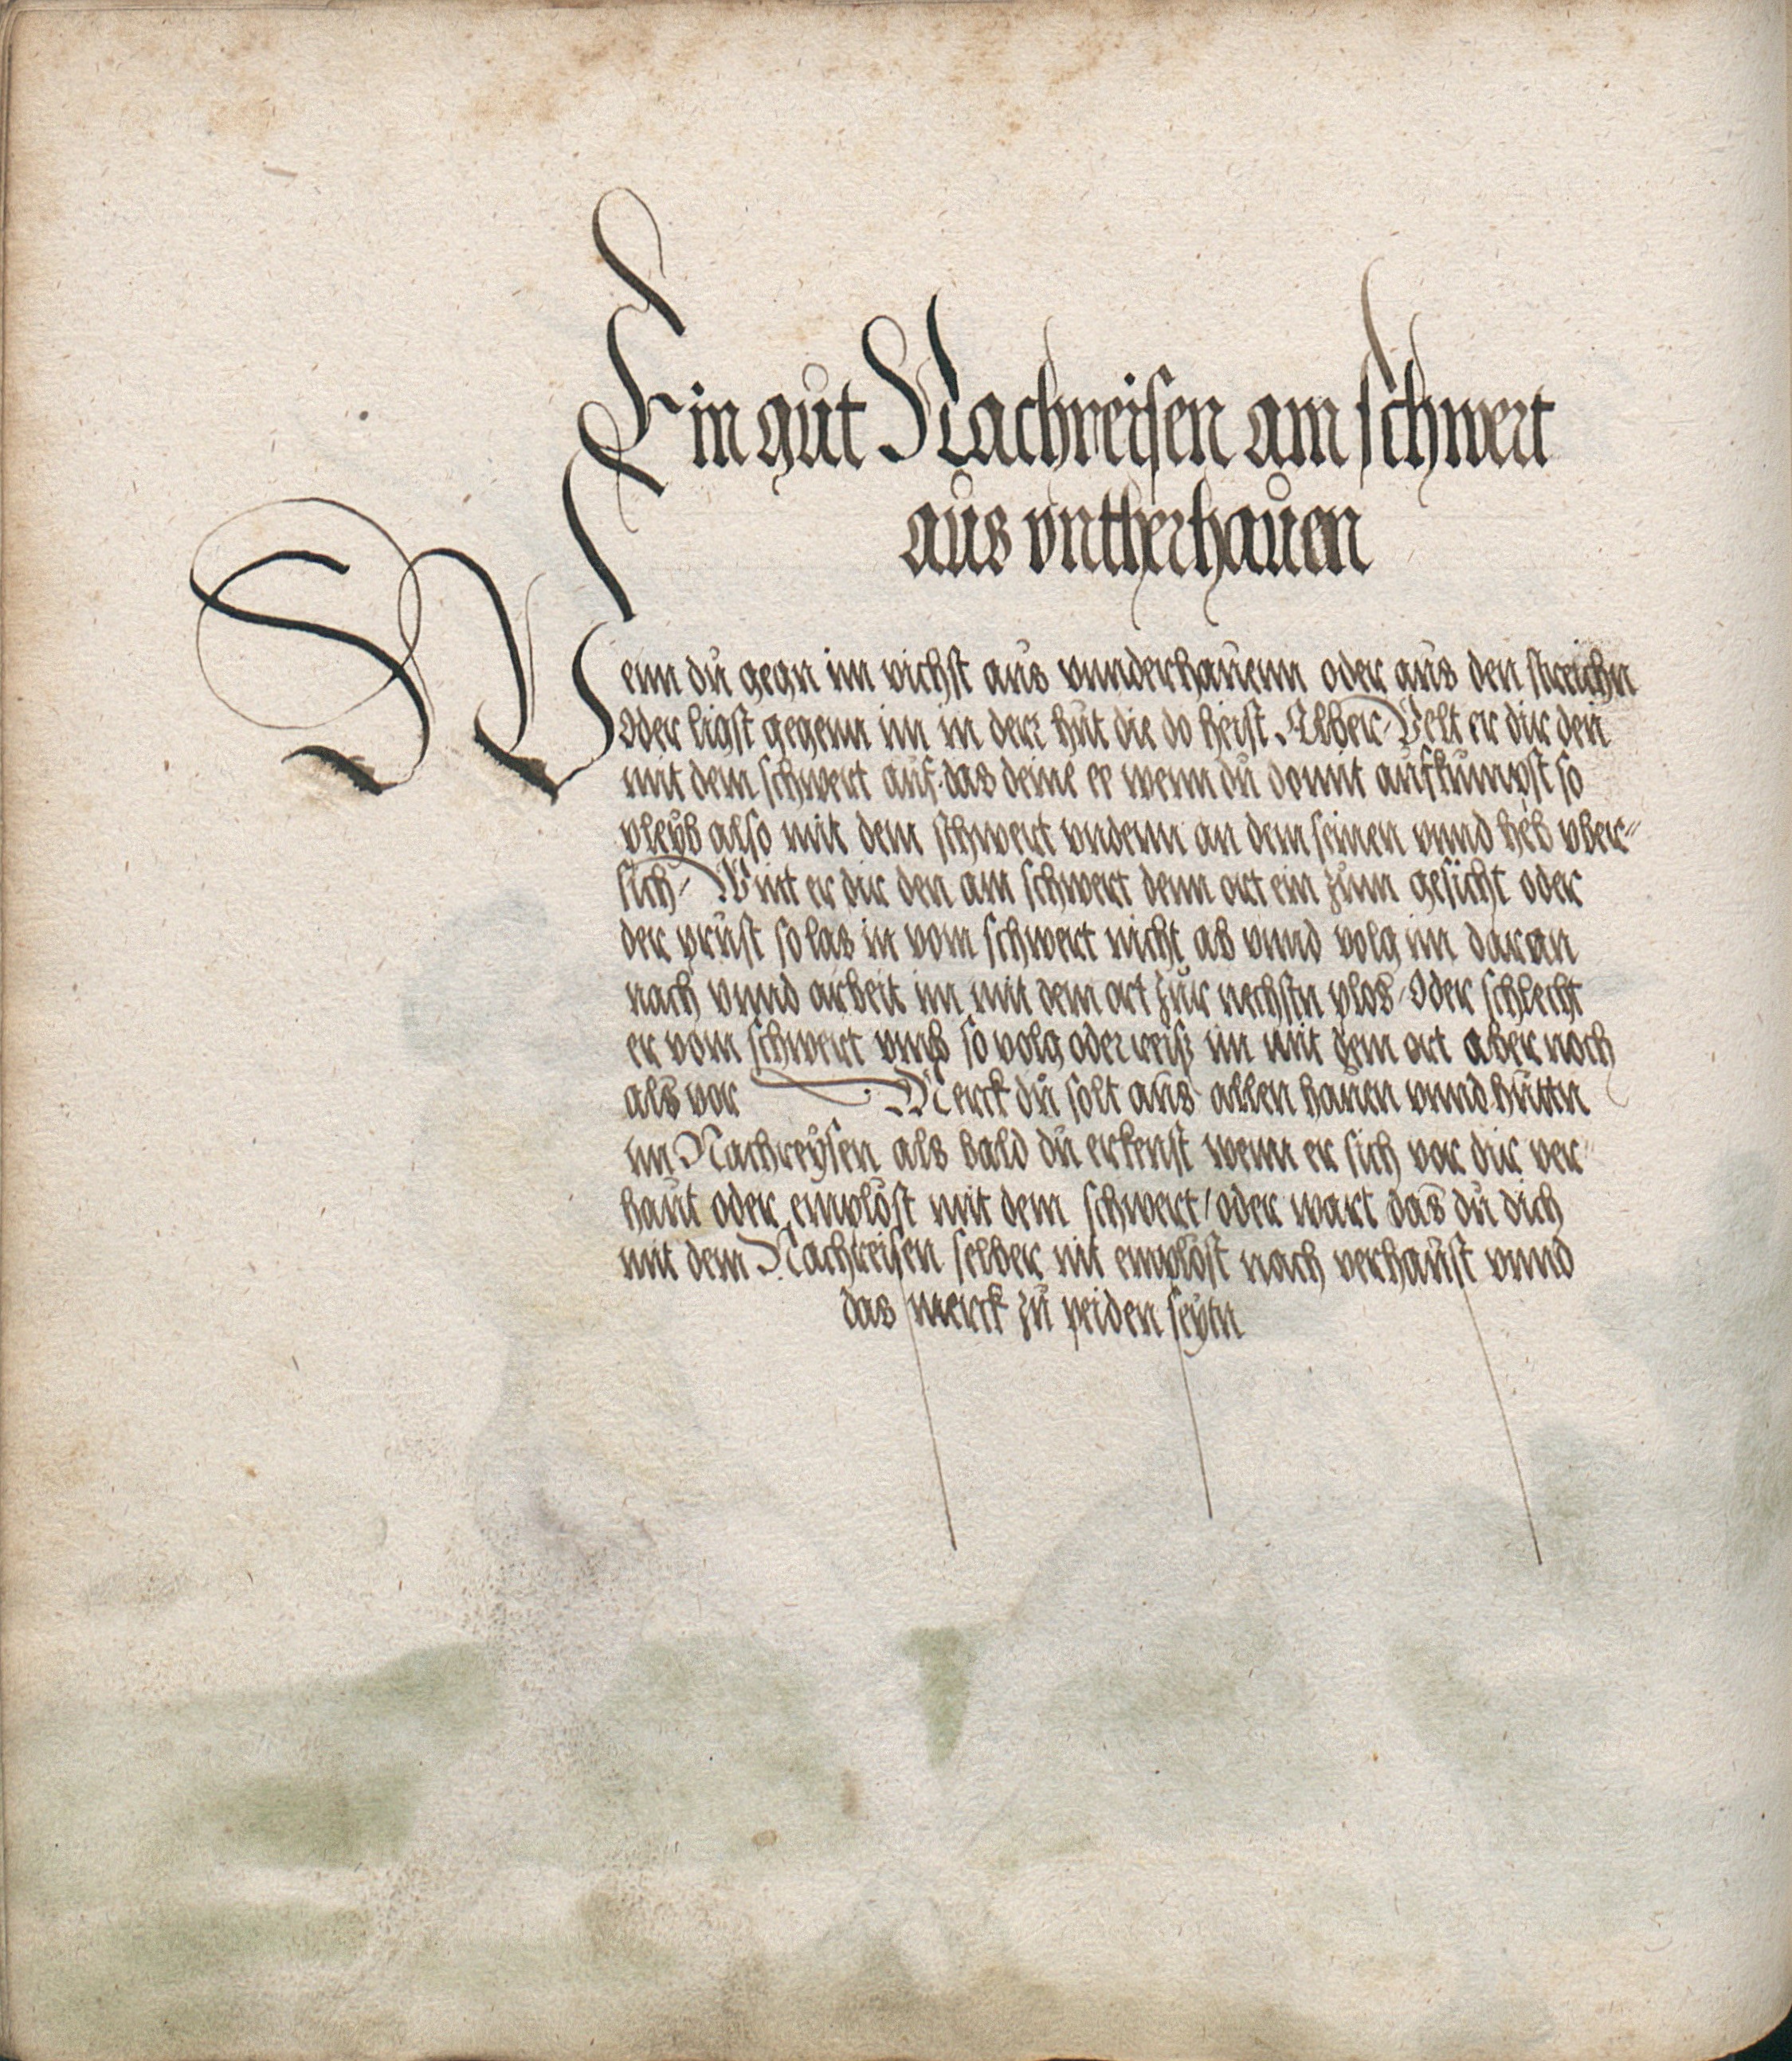 Ein gut Nachreisen am schwert
aus vntherhauen
Wenn du gegn im vichst aus vnnderhauenn oder aus den streichn
Oder ligst gegenn im in derr hut die do heist Alber Velt er dir den
mit dem schwert auf das deine ee wenn du domit aufkumpst so
pleyb also mit dem schwert vndenn an dem seinen vnnd heb vber=
sich / Wint er dir den am schwert denn ort ein zum gesicht oder
der prust so las in vom schwert nicht ab vnnd volg im daran
nach vnnd arbeit im mit dem ort zur nechstn plos / Oder schlecht
er vom schwert vmb so volg oder reiß im mit dem ort aber noch
als vor Merck du solt aus allen hauen vnnd huttn
im Nachreysen als bald du erkenst wenn er sich vor dir ver=
haut oder emplöst mit dem schwert / oder wart das du dich
mit dem Nachreisen selber nit emplöst nach verhaust vnnd
das merck zu peiden seytn